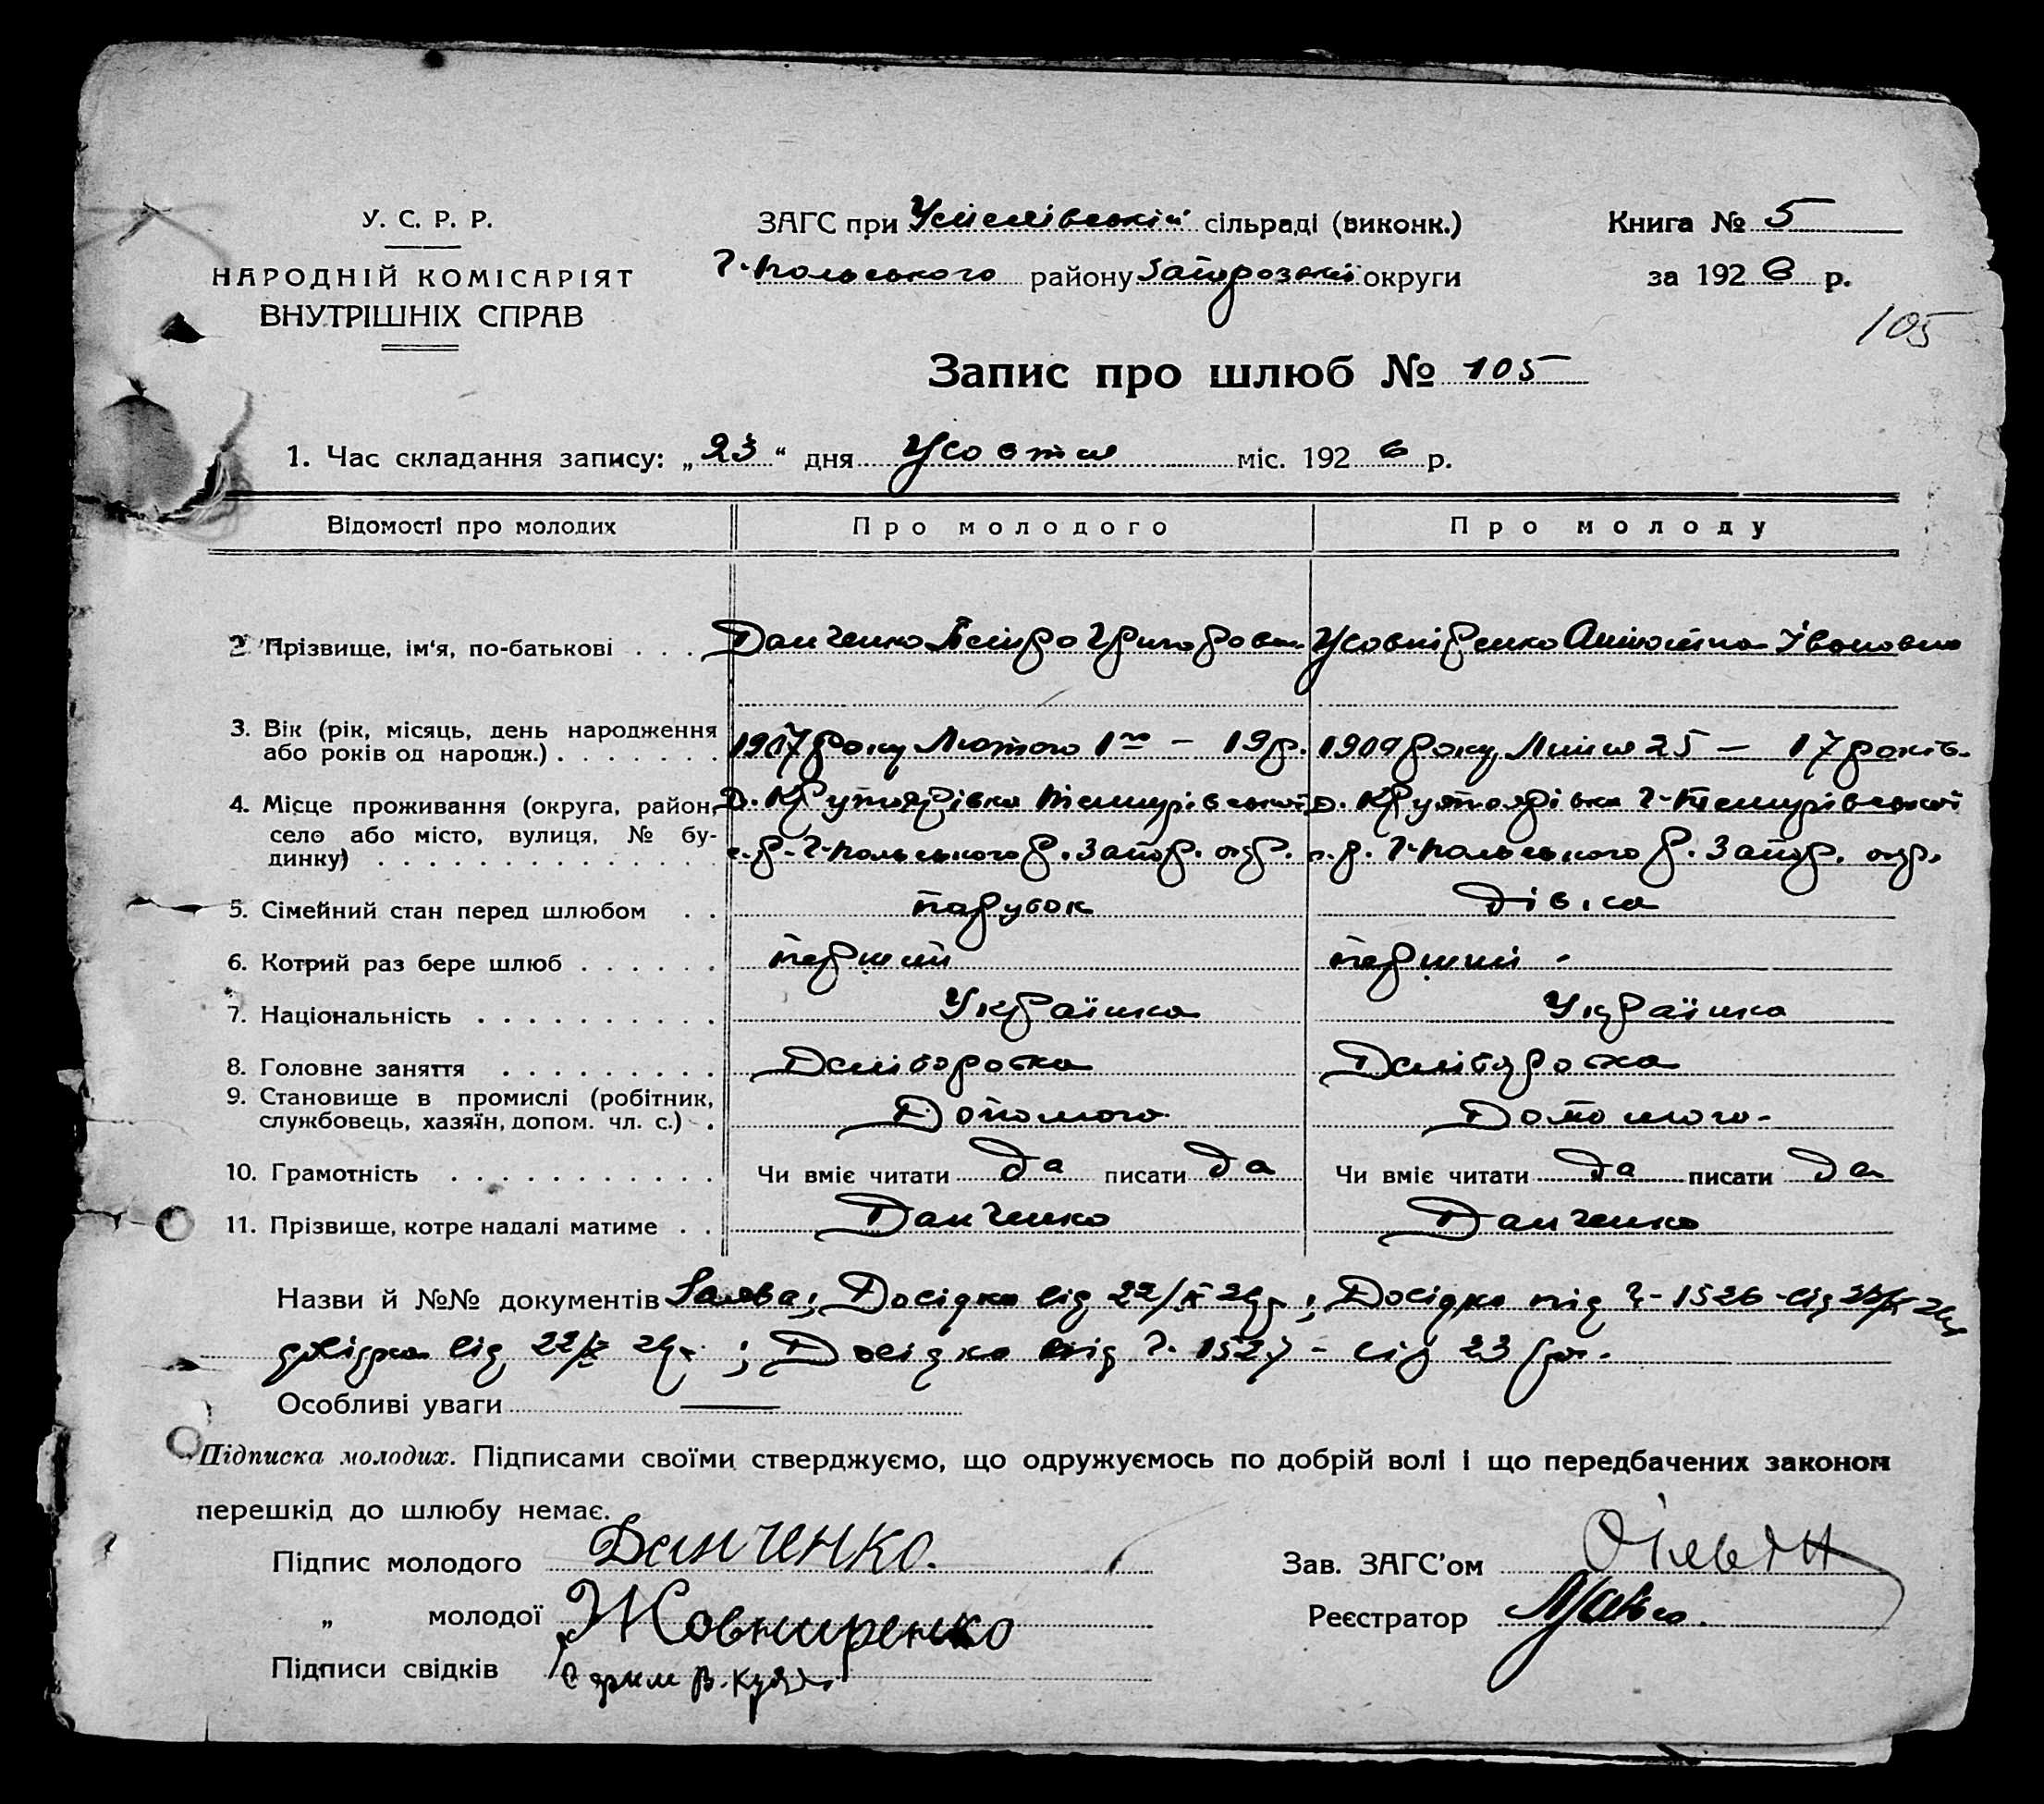 У. С. Р. Р.
НАРОДНІЙ КОМІСАРІЯТ
ВНУТРІШНІХ СПРАВ
ЗАГС при сільраді (виконк.)
Г-Польського району Запорозької округи
Книга № 5
за 1926 р.
105
Запис про шлюб № 105
1. Час складання запису: „23“ дня Жовтня міс. 1926 р.
Відомості про молодих Про молодого Про молоду
2. Прізвище, ім'я, по-батькові . . . Данченко Григоров. Жовніренко Івановна
3. Вік (рік, місяць, день народження
або років од народж.) . . . . . . . 1907 року Лютого 1го – 19 р. 1909 року, Липня 25 – 17 років.
4. Місце проживання (округа, район, Д. Крутоярівка Темирівської Д. Крутоярівка Г-Темирівської
село або місто, вулиця, № бу-
динку) . . . . . . . . . . . . . . с.р. Г-Польського р. Запор. окр. с.р. Г-Польського р. Запор. окр.
5. Сімейний стан перед шлюбом . . парубок дівка
6. Котрий раз бере шлюб . . . . . . перший перший -
7. Національність . . . . . . . . . . Українка Українка
8. Головне заняття . . . . . . . . . Хліборобка Хліборобка
9. Становище в промислі (робітник,
службовець, хазяїн, допом. чл. с.) . Допомога Допомога
10. Грамотність . . . . . . . . . . . Чи вміє читати да писати да Чи вміє читати да писати да
11. Прізвище, котре надалі матиме . . Данченко Данченко
Назви й №№ документів Заява; Досідка від 22/X 26 р.; Досідка під № 1526 від
від 22/X 26 р.; Досідка під № 1527 – від 23
Особливі уваги —
Підписка молодих. Підписами своїми стверджуємо, що одружуємось по добрій волі і що передбачених законом
перешкід до шлюбу немає.
Підпис молодого Данченко.
„ молодої Жовниренко
Підписи свідків
Зав. ЗАГС'ом
Реєстратор